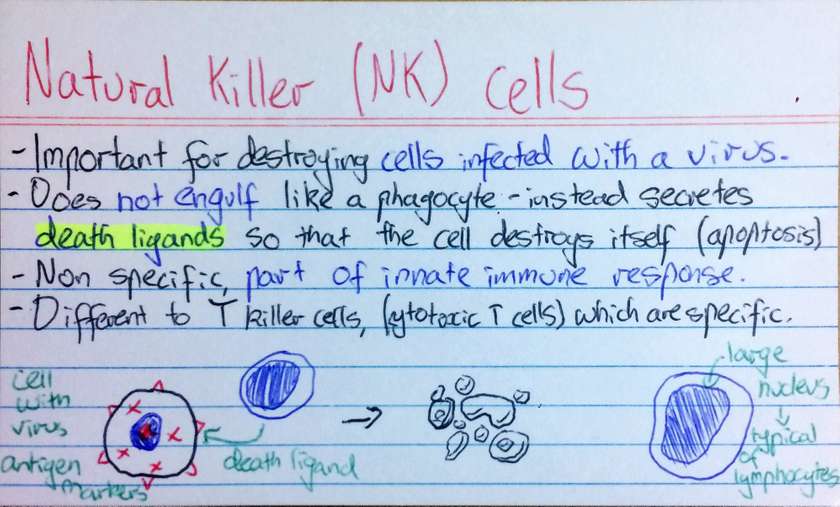 Natural Killer (NK) Cells
- Important for destroying cells infected with a virus.
- Does not engulf like a phagocyte - instead secretes
death ligands so that the cell destroys itself (apoptosis)
- Non specific, part of innate immune response.
- Different to T killer cells, (cytotoxic T cells) which are specific.
cell
with
virus
antigen
markers
death ligand
large
nucleus
typical
of
lymphocytes